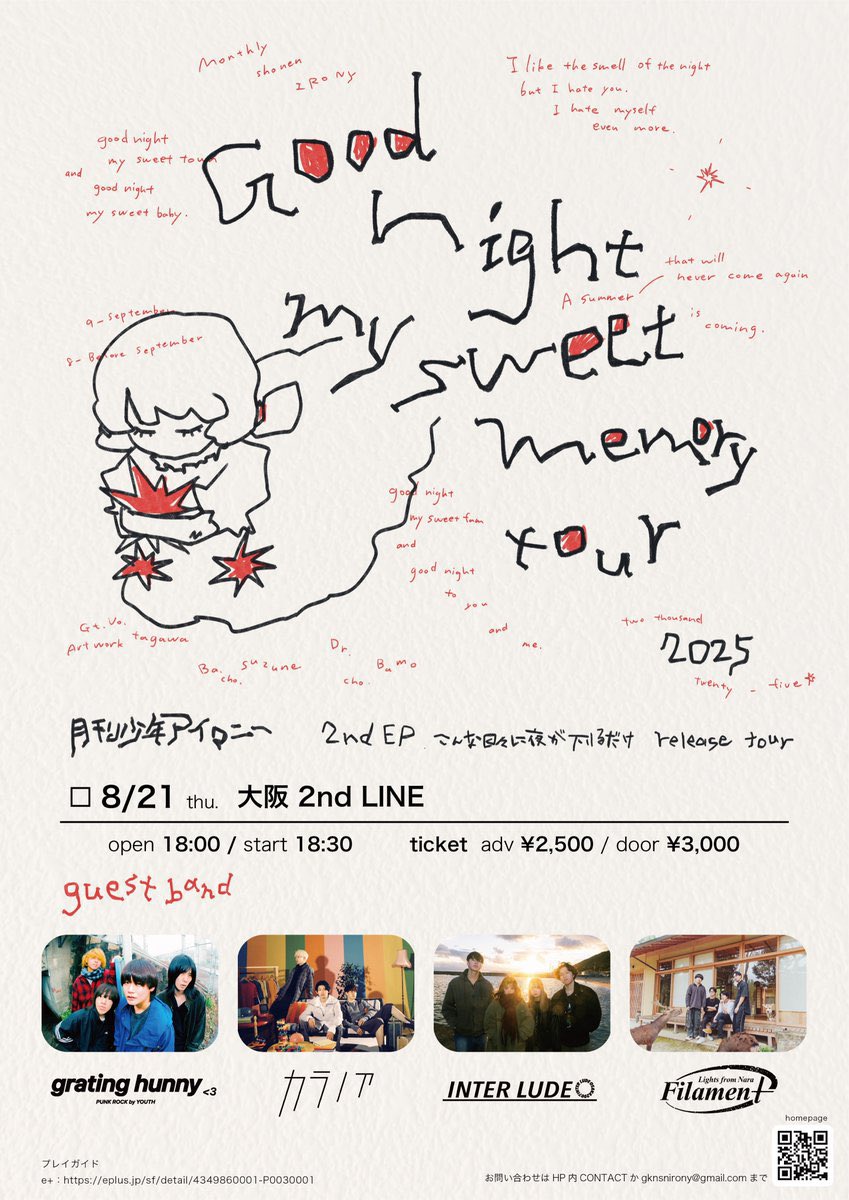 Monthly
shonen
IRONY
I like the smell of the night
but I hate you.
I hate myself
even more.
good night
my sweet town
and
good night
my sweet baby.
Good
night
my
sweet
memory
tour
that will
never come again
A summer
is
coming.
9 - September
8 - Before September
good night
my sweet fam
and
good night
to
you
and
me.
Gt. Vo.
Art work tagawa
Ba.
cho. suzune
Dr.
cho. Bumo
two thousand
2025
twenty - five
月刊少年アイロニー 2nd EP こんな日々に夜が下りるだけ release tour
□ 8/21 thu. 大阪 2nd LINE
open 18:00 / start 18:30 ticket adv ¥2,500 / door ¥3,000
guest band
grating hunny <3
PUNK ROCK by YOUTH
カラノア
INTER LUDE
Lights from Nara
Filament
homepage
プレイガイド
e+：https://eplus.jp/sf/detail/4349860001-P0030001
お問い合わせは HP 内 CONTACT か gknsnirony@gmail.com まで